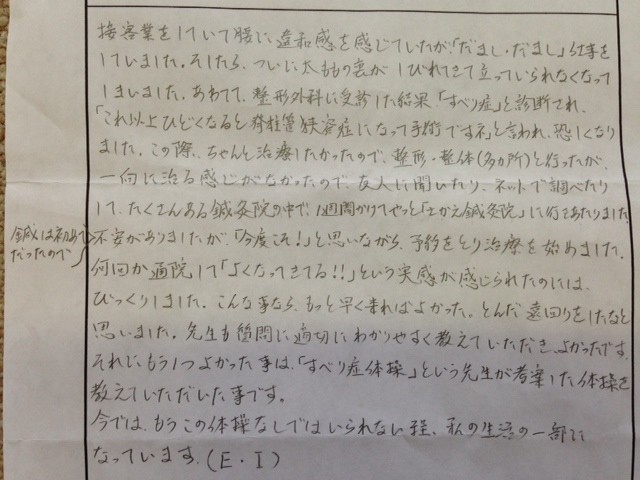 接客業をしていて腰に違和感を感じていたが、「だまし・だまし」仕事を
していました。そしたら、ついに太ももの裏がしびれてきて立っていられなくなって
しまいました。あわてて、整形外科に受診した結果「すべり症」と診断され、
「これ以上ひどくなると脊柱管狭窄症になって手術ですネ」と言われ、恐しくなり
ました。この際、ちゃんと治療したかったので、整形・整体(多カ所)と行ったが、
一向に治る感じがなかったので、友人に聞いたり、ネットで調べたり
して、たくさんある鍼灸院の中で、1週間かけてやっと「さかえ鍼灸院」に行きあたりました。
鍼は初めて
だったので
不安がありましたが、「今度こそ!」と思いながら、予約をとり治療を始めました。
何回か通院して「よくなってきてる!!」という実感が感じられたのには、
びっくりしました。こんな事なら、もっと早く来ればよかった。とんだ遠回りをしたなと
思いました。先生も質問に適切にわかりやすく教えていただき、よかったです。
それに、もう1つよかった事は、「すべり症体操」という先生が考案した体操を
教えていただいた事です。
今では、もうこの体操なしではいられない程、私の生活の一部に
なっています。(E・I)